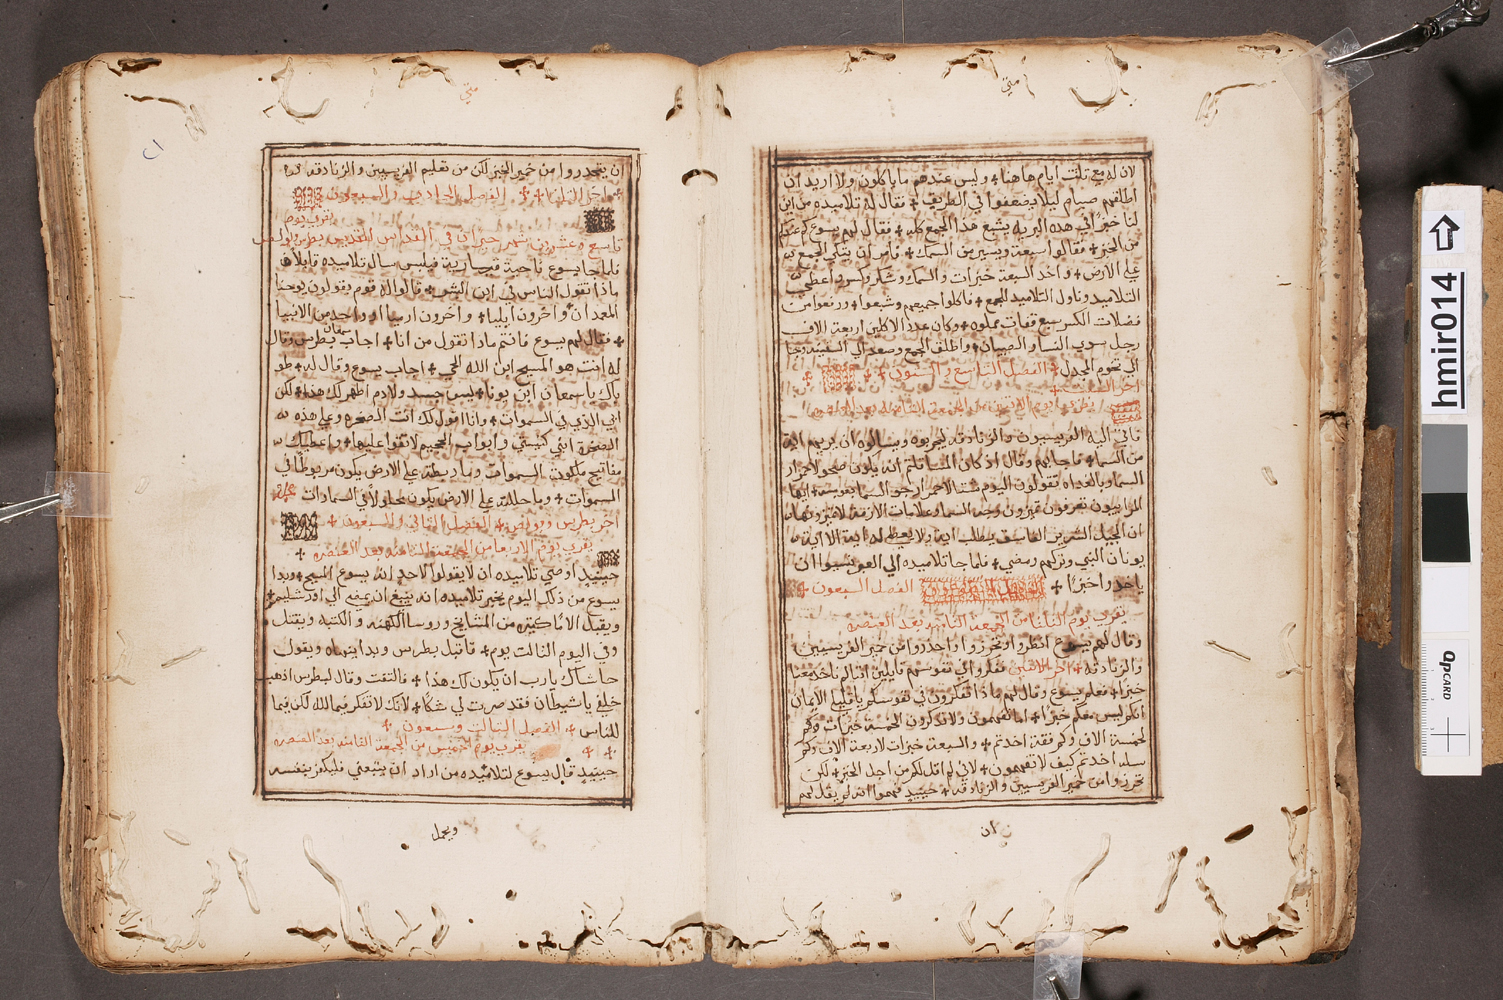 متي
لان له مع تلت ايام هاهنا + وليس عندهم ما ياكلون ولا اريد ان
اطلقهم صيام ليلا يضعفوا في الطريف + فقال له تلاميده من اين
لنا خبزًا في هده البريه يشبع هدا الجمع كله + فقال لهم يسوع كم عندكم
من الخبز + فقالوا سبعة ويسير من السمك + فامر ان يتكي الجمع
علي الارض + واخد السبعة خبزات والسمك وشكر وكسر واعطي
التلاميد وناول التلاميد الجمع + فاكلوا جميعهم وشبعوا + ورفعوا من
فضلات الكسر سبع قفات مملوه + وكان عدد الاكلين اربعة الاف
رجل سوي النسا والصبيان + واطلق الجمع وصعد الي السفينه وجا
الي تخوم المجدل + الفصل التاسع والستون +
اخر
فاتي اليه الفريسيون والزنادقه ليجربوه ويسالوه ان يريهم اية
من السما + فاجابهم وقال اذ كان المسا قلتم انه يكون صحو لاحمرار
السما وبالغداه تقولون اليوم شتا لاحمرار جو السما بعبوسة + ايها
المراييون تعرفون تميزون وجه السما وعلامات الازمنة لا تميزونها
ان الجيل الشرير الفاسق يطلب اية ولا يعطي له اية الا اية
يونان النبي وتركهم ومضي + فلما جا تلاميده الي العبر نسيوا ان
ياخدوا خبزًا + الفصل السبعون +
يقري يوم التلتا من الجمعه التامنه بعد العنصره
وقال لهم يسوع انظروا وتحرزوا واحدروا من خمير الفريسيين
والزنادقه + اخر الاتنين ففكروا في نفوسهم قايلين اننا لم ناخد معنا
خبزا + فعلم يسوع وقال لهم مادا تفكرون في نفوسكم يا قليلي الايمان
انكم ليس معكم خبزًا + اما تفهمون ولا تدكرون الخمسة خبزات وكم
لخمسة الاف وكم قفة اخدتم + والسبعة خبزات لاربعة الاف وكم
سله اخدتم كيف لا تفهمون + لاني لم اقل لكم من اجل الخبز + لكن
تحرزوا من خمير الفريسيين والزنادقه + حينيد فهموا انه لم يقل لهم
ان
متي
ان يتحدروا من خمير الخبز لكن من تعليم الفريسيين والزنادقه
اخر التلتا + الفصل الحادي والسبعون
يقري يوم
تاسع وعشرين شهر حزيران في القداس للقديس بطرس وبولس
فلما جا يسوع ناحية قيسارية فيلبس سال تلاميده قايلا
مادا تقول الناس في ابن البشر + قالوا له قوم يقولون يوحنا
المعمدان واخرون ايليا + واخرون ارميا او واحد من الانبيا
+ فقال لهم يسوع فانتم مادا تقول من انا + اجاب سمعان بطرس وقال
له انت هو المسيح ابن الله الحي + اجاب يسوع وقال له + طو
باك يا سمعان ابن يونا + ليس جسد ولا دم اظهر لك هدا + لكن
ابي الدي في السموات + وانا اقول لك انت الصخره وعلي هده
الصخرة ابني كنيستي وابواب الجحيم لا تقوا عليها + واعطيك
مفاتيح ملكوت السموات وما ربطته علي الارض يكون مربوطًا في
السموات + وما حللته علي الارض يكون محلولا في السماوات
اخر بطرس وبولص + الفصل التاني والسبعون +
يقري يوم الاربعا من الجمعه التامنه بعد العنصره +
حينيد اوصي تلاميده ان لا يقولوا لاحد انه يسوع المسيح + وبدا
يسوع من دلك اليوم يخبر تلاميده انه ينبغي ان يمضي الي اورشليم
ويقبل الامًا كتيره من المشايخ وروسا الكهنه والكتبه ويقتل
وفي اليوم التالت يقوم + فاقبل بطرس وبدا ينهاه ويقول
حاشاك يارب ان يكون لك هدا + فالتفت وقال لبطرس ادهب
خلفي يا شيطان فقد صرت لي شكًا + لانك لا تفكر فيما لله لكن فيما
للناس + الفصل التالت وسبعون +
يقري يوم الخميس من الجمعه التامنه بعد العنصره
حينيد قال يسوع لتلاميده من اراد ان يتبعني فليكفر بنفسه
ويحمل
hmir014
QPCARD